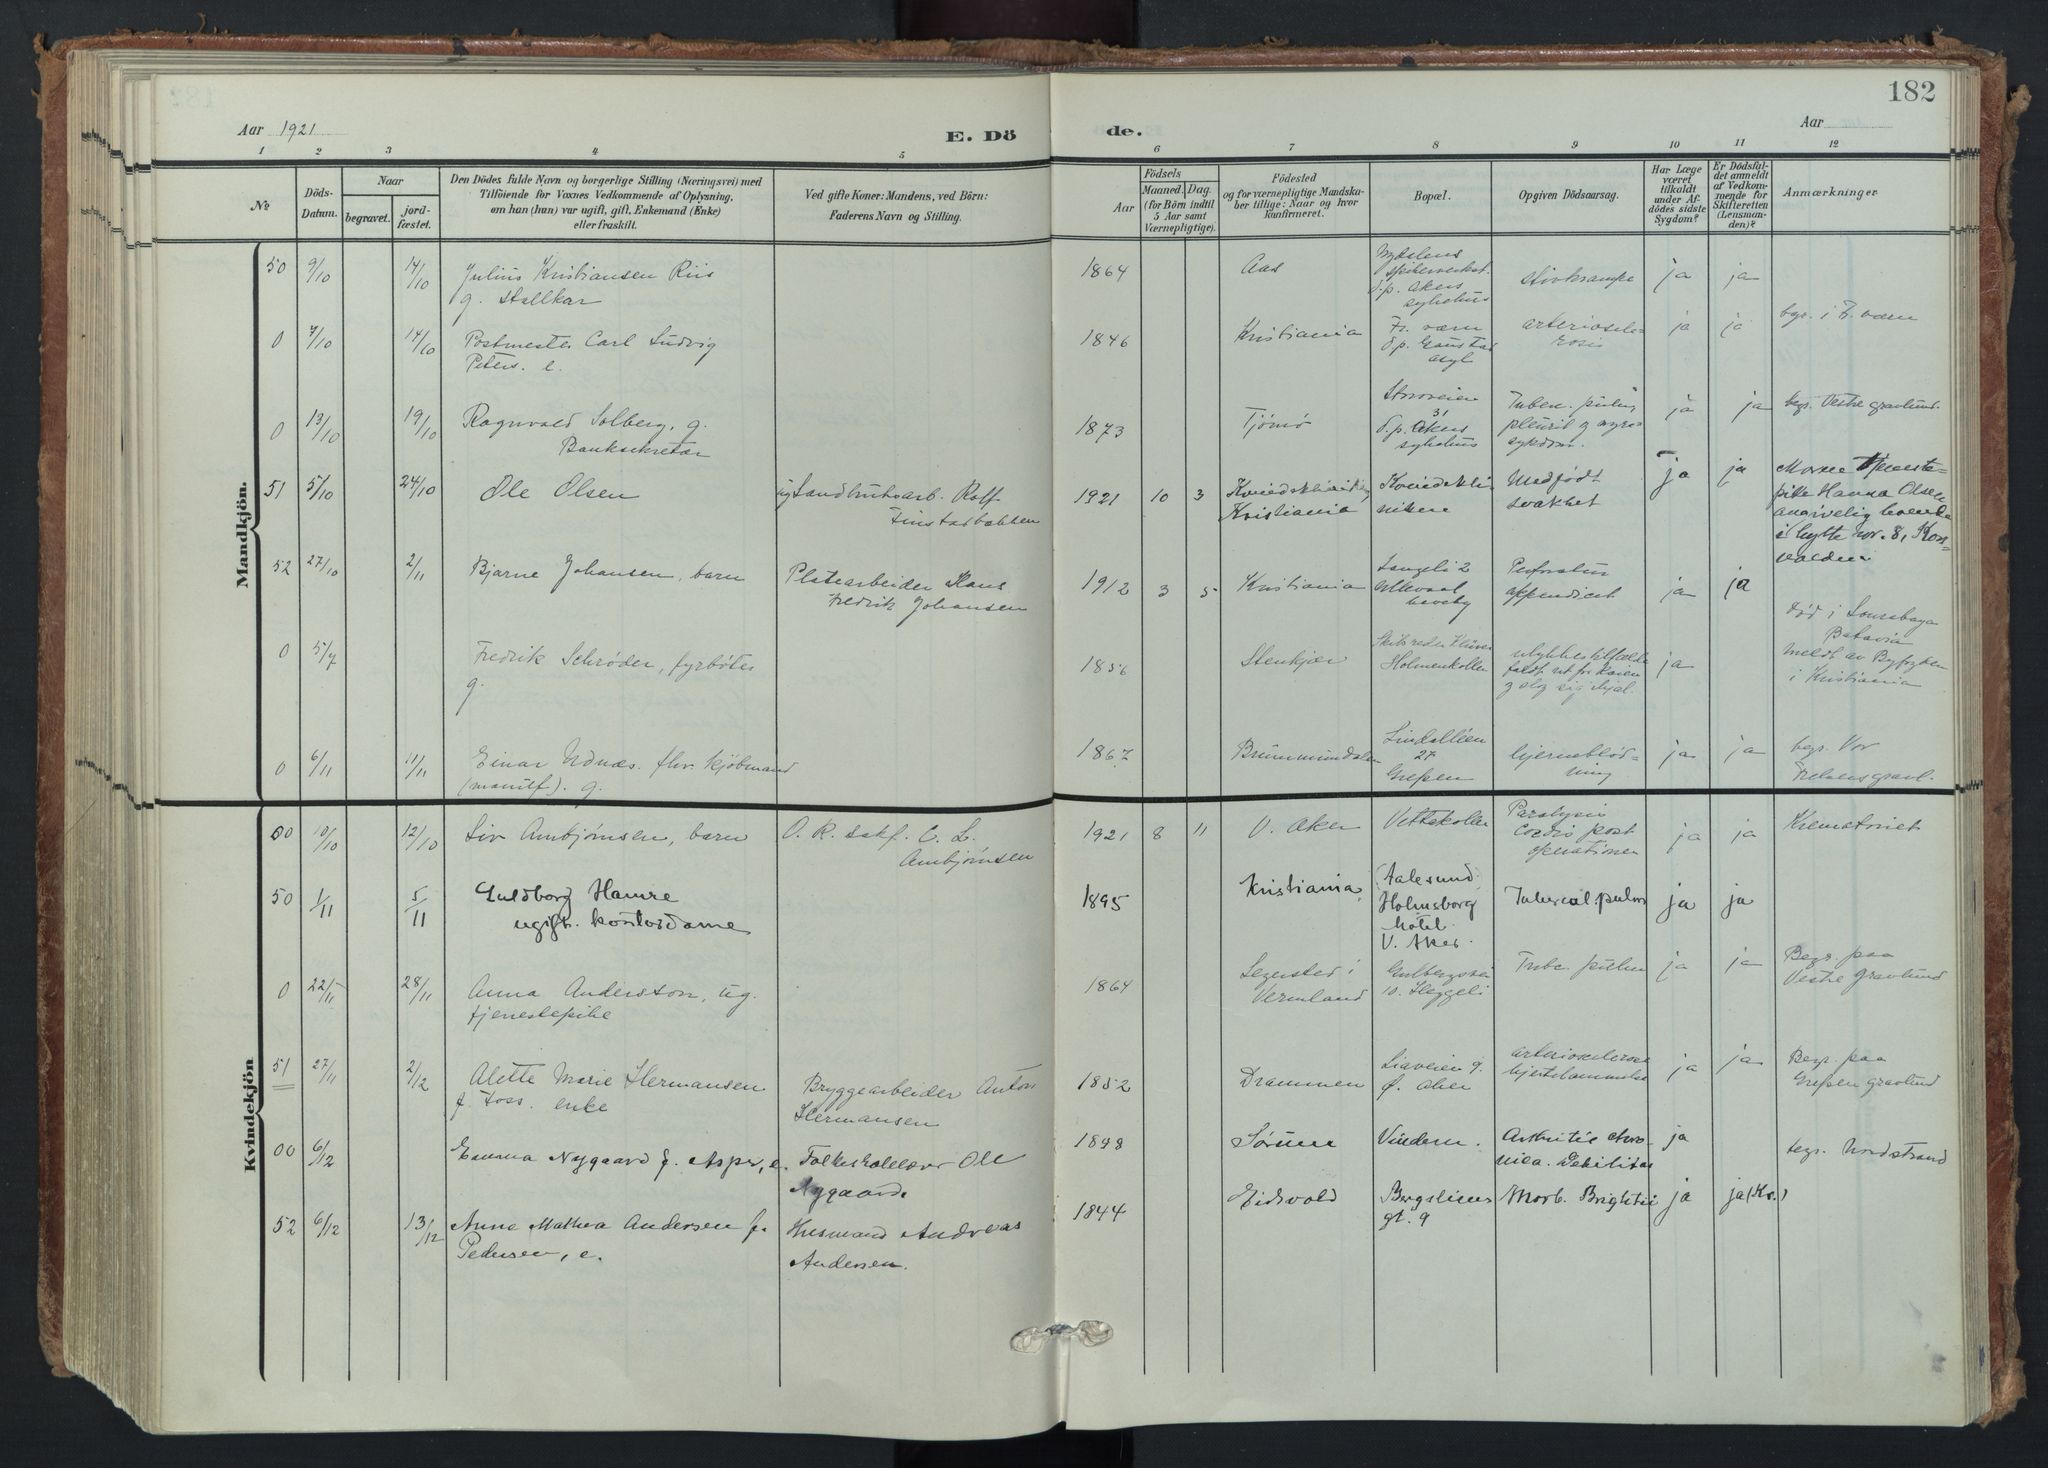 182
Aar 1921
E. Dö
de.
Aar
1 2 3 4 5 6 7 8 9 10 11 12
№
Döds-
Datum.
Naar
begravet.
jord-
fæstet.
Den Dödes fulde Navn og borgerlige Stilling (Næringsvei) med
Tilföiende for Voxnes Vedkommende af Oplysning,
om han (hun) var ugift, gift, Enkemand (Enke)
eller fraskilt.
Ved gifte Koner: Mandens, ved Börn:
Faderens Navn og Stilling.
Födsels
Aar
Maaned. Dag.
(for Börn indtil
5 Aar samt
Værnepligtige).
Födested
og for værnepligtige Mandska-
ber tillige: Naar og hvor
Konfirmeret.
Bopæl.
Opgiven Dödsaarsag.
Har Læge
været
tilkaldt
under Af-
dödes sidste
Sygdom?
Er Dödsfal-
det anmeldt
af Vedkom-
mende for
Skifteretten
(Lensman-
den)?
Anmærkninger
Mandkjön.
50 9/10 14/10 Julius Kristiansen Riis
g. Stallkar
1864 Aas
spikerverkst.
d.p. Akers
sykehus
stivkrampe ja ja
0 7/10 14/10 Postmester Carl Ludvig
Peters. e.
1846 Kristiania Fr. værn
d.p. Gaustad
asyl
arterioscle-
rosis
ja ja begr. i Fr. værn
0 13/10 19/10 Ragnvald Solberg, g.
Banksekretær
1873 Tjömö Storoveien
31
d.p. Akers
sykehus
Tuberc. pulm,
pleurit g nyre
sykdom.
ja ja begr. Vestre gravlund.
51 5/10 24/10 Ole Olsen ug Sandbruksarb. Rolf
Finstadbakken
1921 10 3 Kvindeklinikken
Kristiania
Kvindekli
nikken
Medfödt
svakhet
ja ja Moren Tjeneste-
pike Hanna Olsen
angivelig boende
i hytte nr. 8, Kors-
volden
52 27/10 2/11 Bjarne Johansen, barn Platearbeider Hans
Fredrik Johansen
1912 3 5 Kristiania Langeli 2
Ullevaal
haveby
Perforatus
appendicit
ja ja
0 5/7 Fredrik Schrøder, fyrbøter
g.
1856 Stenkjær
Holmenkollen
ulykkestilfælde
faldt ut for kaien
g slog sig ihjel.
ja död i Sourabaya
Batavia
meldt av Byfogden
i Kristiania
0 6/11 11/11 Einar Udnæs. fhv. kjöbmand
(manuf). g.
1867 Brummundalen Lindalléen
27
Grefsen
hjerneblöd-
ning
ja ja begr. Vor
Frelsers gravl.
Kvindekjön
00 10/10 12/10 Liv Ambjørnsen, barn O. R. sakf. C. L.
Ambjørnsen
1921 8 11 V. Aker Vettakollen Paralysis
Cordis post
operationen
ja ja Krematoriet
50 1/11 5/11 Guldborg Hamre
ugift. kontordame
1895 Kristiania, (Aalesund)
Holmsborg
hotel
V. Aker.
Tubercul. pulm ja ja
0 22/11 28/11 Anna Anderston, ug.
tjenestepike
1864 Segersted i
Vermland
10. Heggeli
Tubc. pulm ja ja Begr. paa
Vestre Gravlund
51 27/11 2/12 Alette Marie Hermansen
f. Foss. enke
Bryggearbeider Anton
Hermansen
1852 Drammen Liaveien 9
Ø. Aker
arteriosclerose
hjertelammelse
ja ja Begr. paa
Grefsen gravlund
00 6/12 Emma Nygaard f. Asper, e. Folkeskolelærer Ole
Nygaard.
1848 Sørum Vindern. Arthritis chro-
nica. Debilitas
ja begr. Nordstrand
52 6/12 13/12 Anna Mathea Andersen f.
Pedersen, e.
Husmand Andreas
Andersen.
1844 Eidsvold Bergsliens
gt. 9
Morb. Brightii ja ja (Kr.)